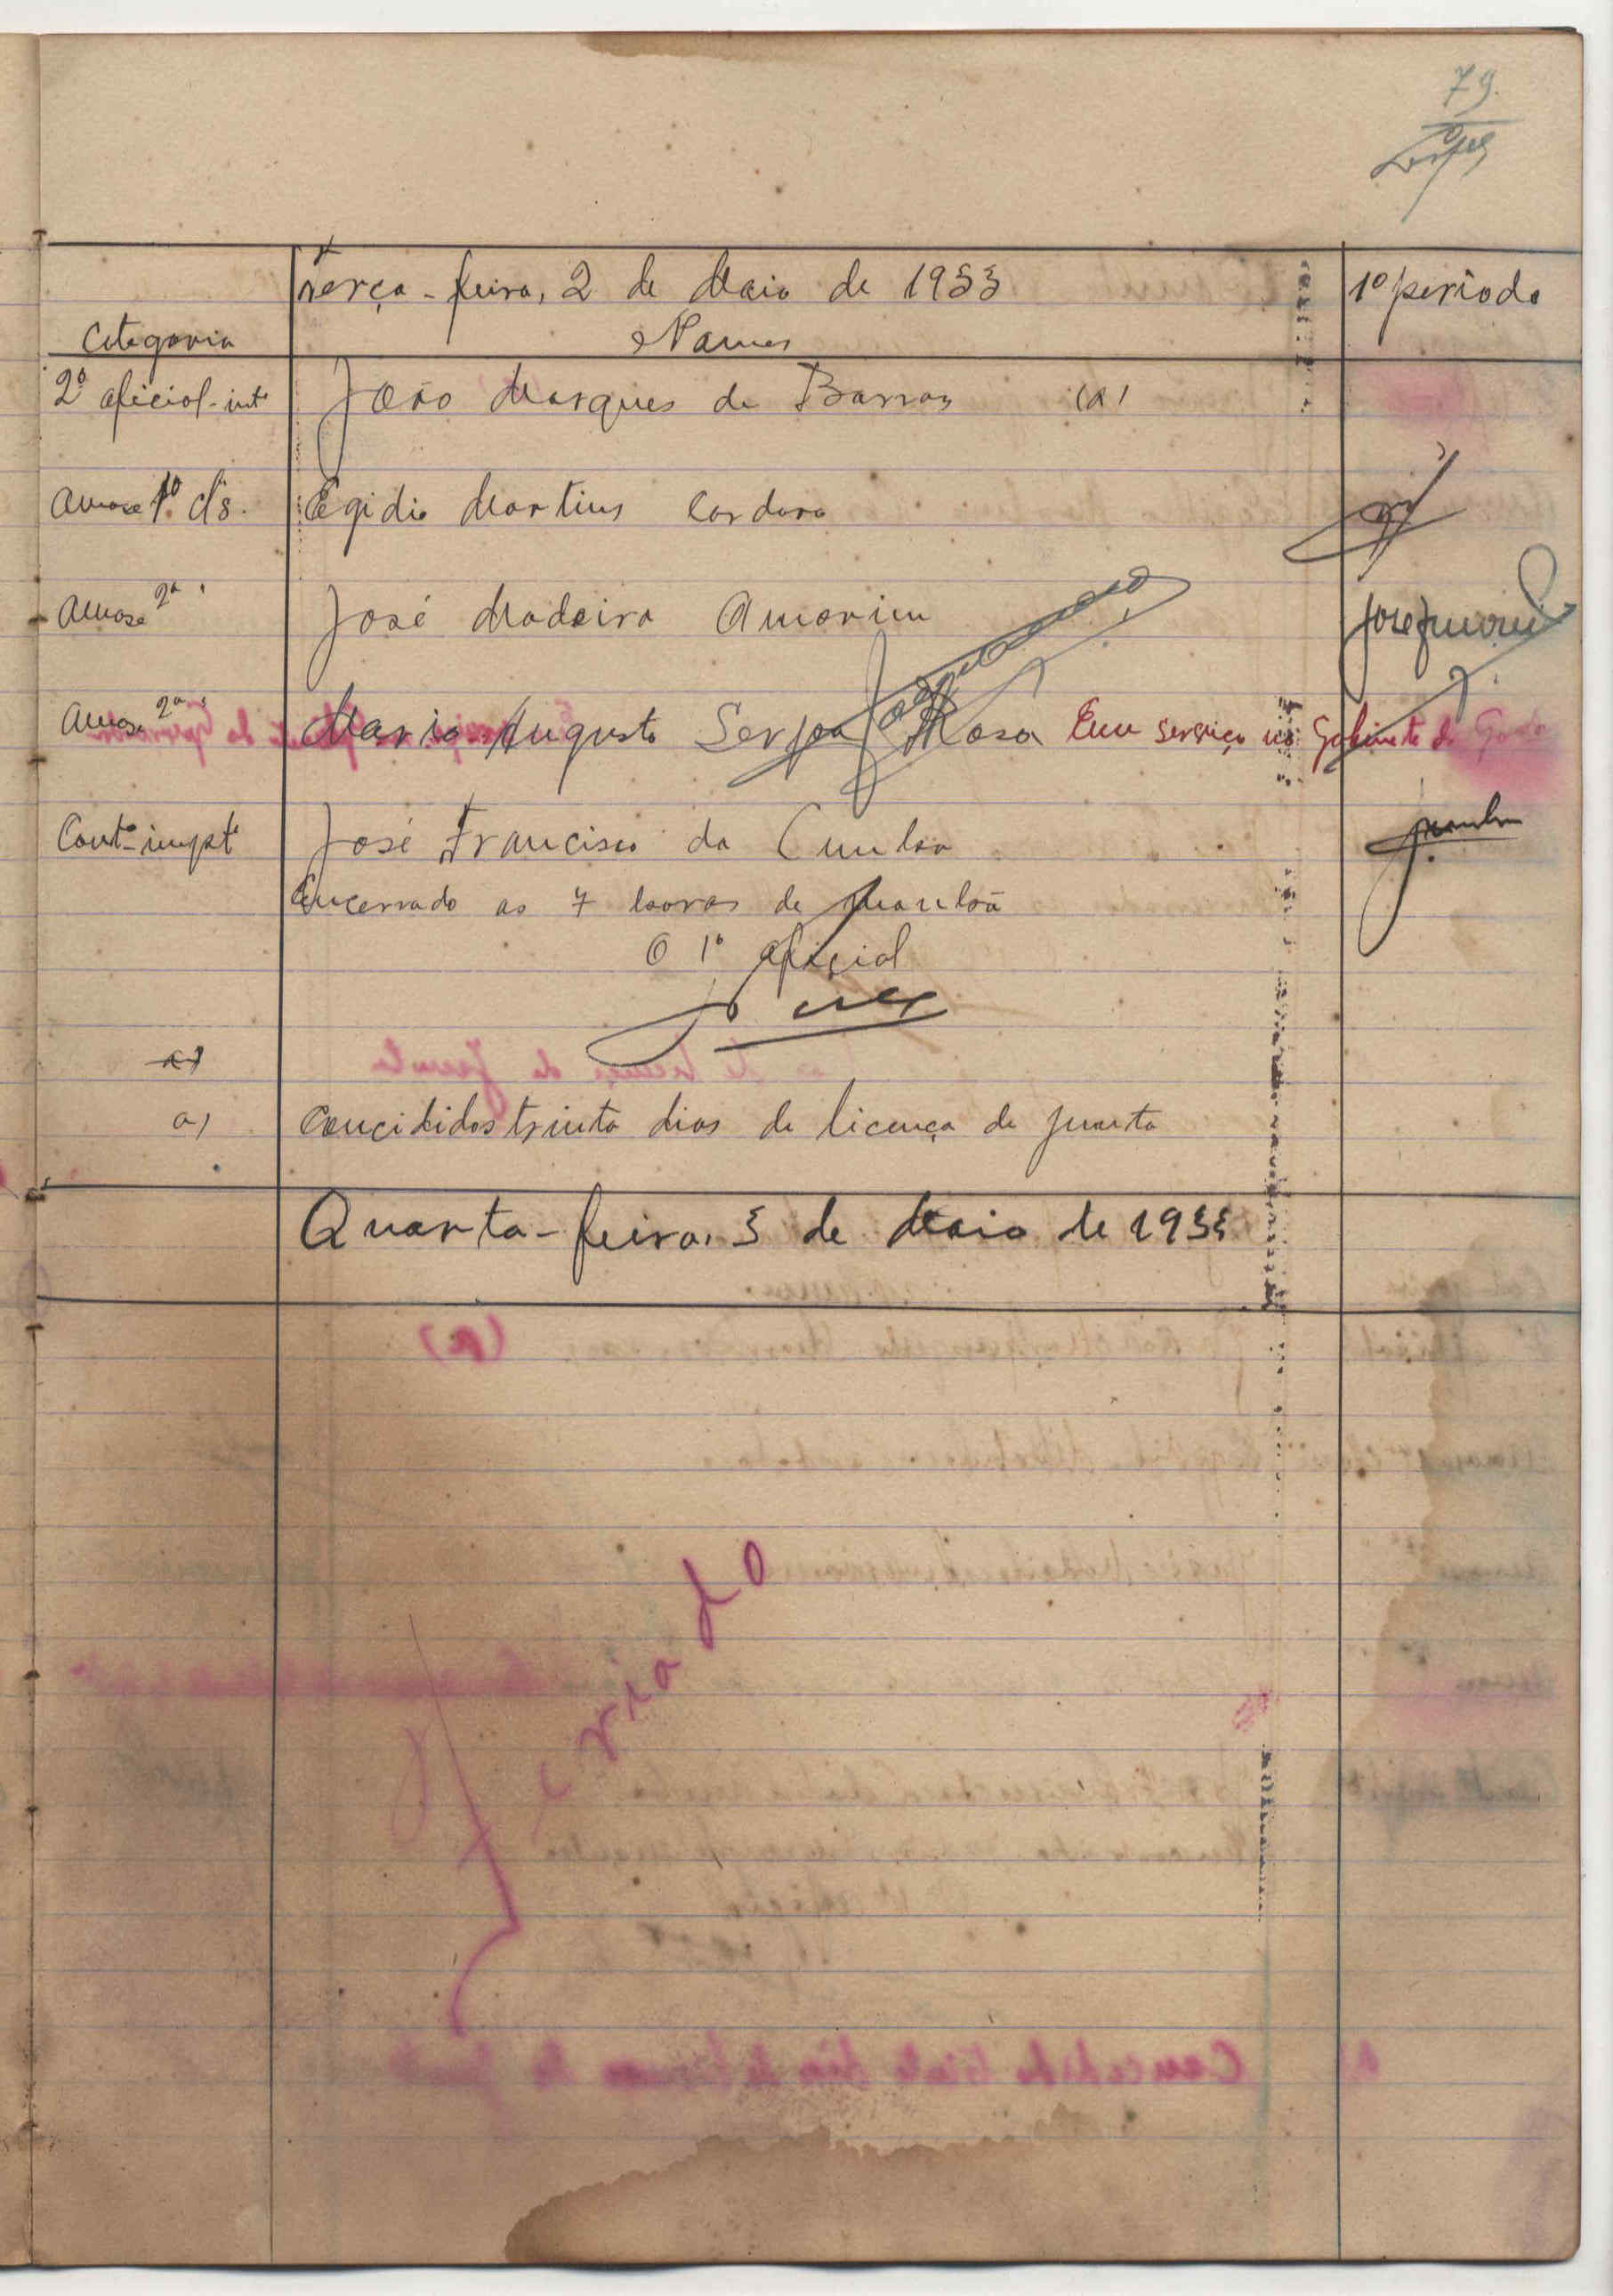 79.
Lopes
Terça-feira, 2 de Maio de 1933
1º periodo
Categoria
Nomes
2º oficial-intº
João Marques de Barros (a)
Amase 1ª cls.
Egidio Martins Cardoso
Amase 2ª "
José Madeira Amorim
Amase 2ª "
Mario Augusto Serpa Rosa Em serviço no Gabinete do Gov
Contº impt
José Francisco da Cunha
Encerrado as 7 horas de manhã
O 1º oficial
a)
a) Concididos trinta dias de licença de junta
Quarta-feira, 3 de Maio de 1933
(a)
Feriado